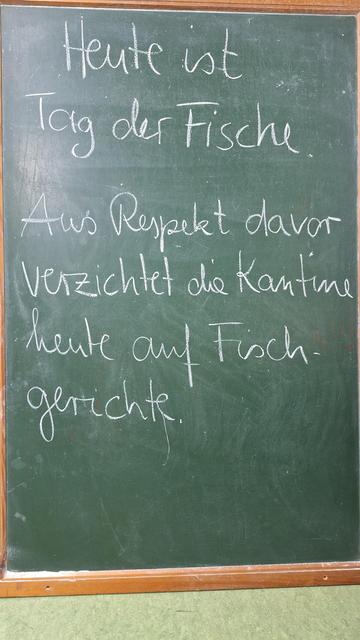 Heute ist
Tag der Fische.
Aus Respekt davor
verzichtet die Kantine
heute auf Fisch-
gerichte.